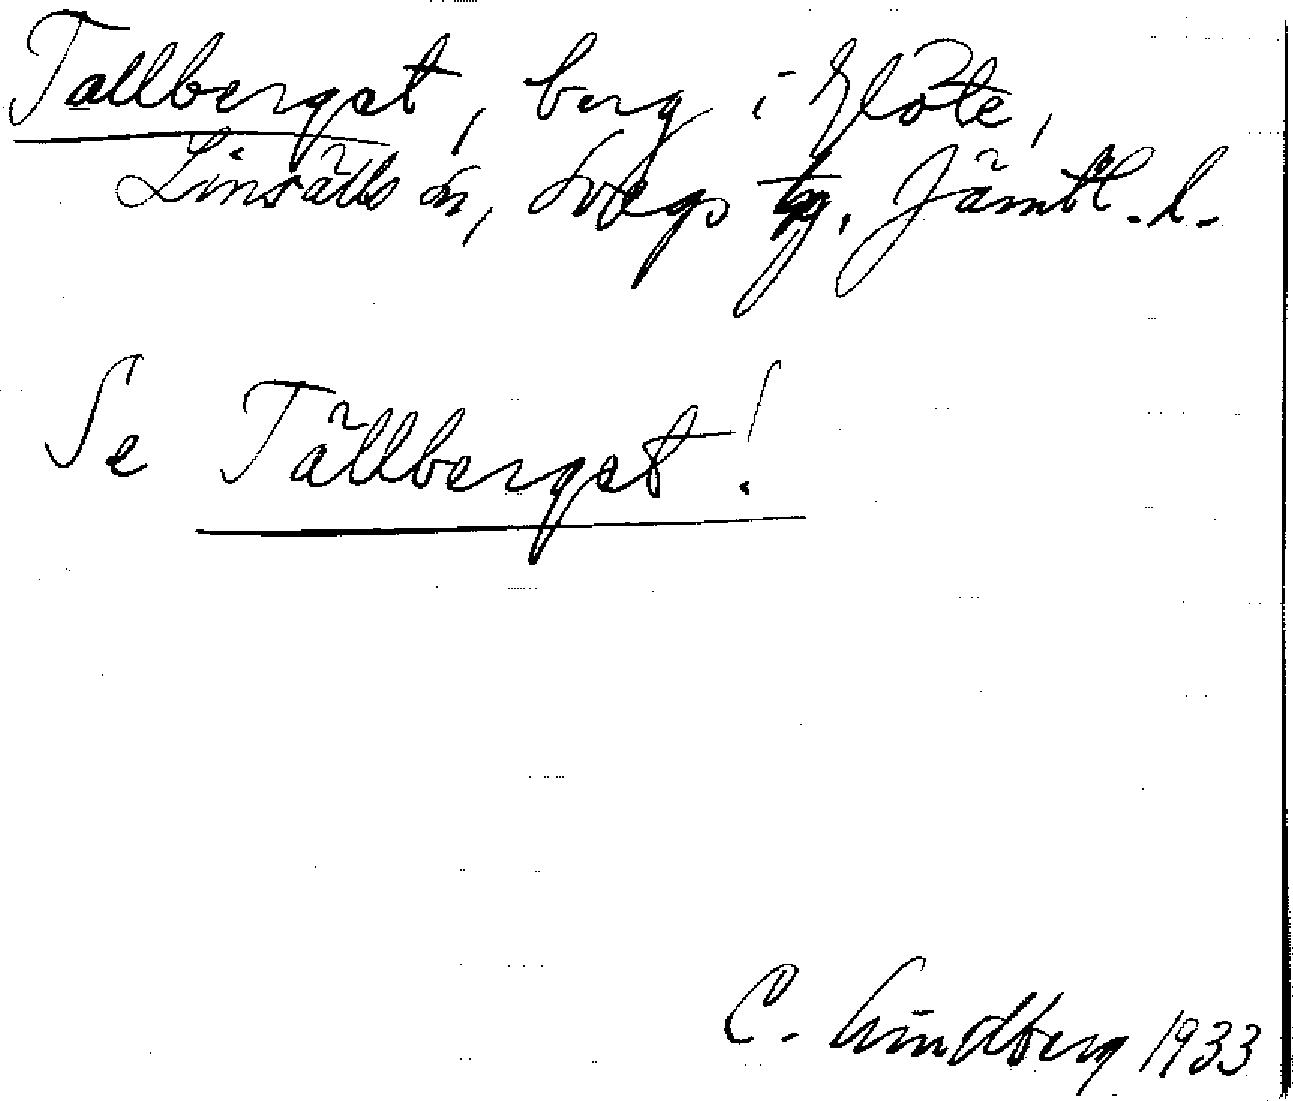 Tallberget, berg i Glöte,
Linsälls sn, Svegs tg. Jämtl. l.
Se Tällberget!
C. Lindberg 1933